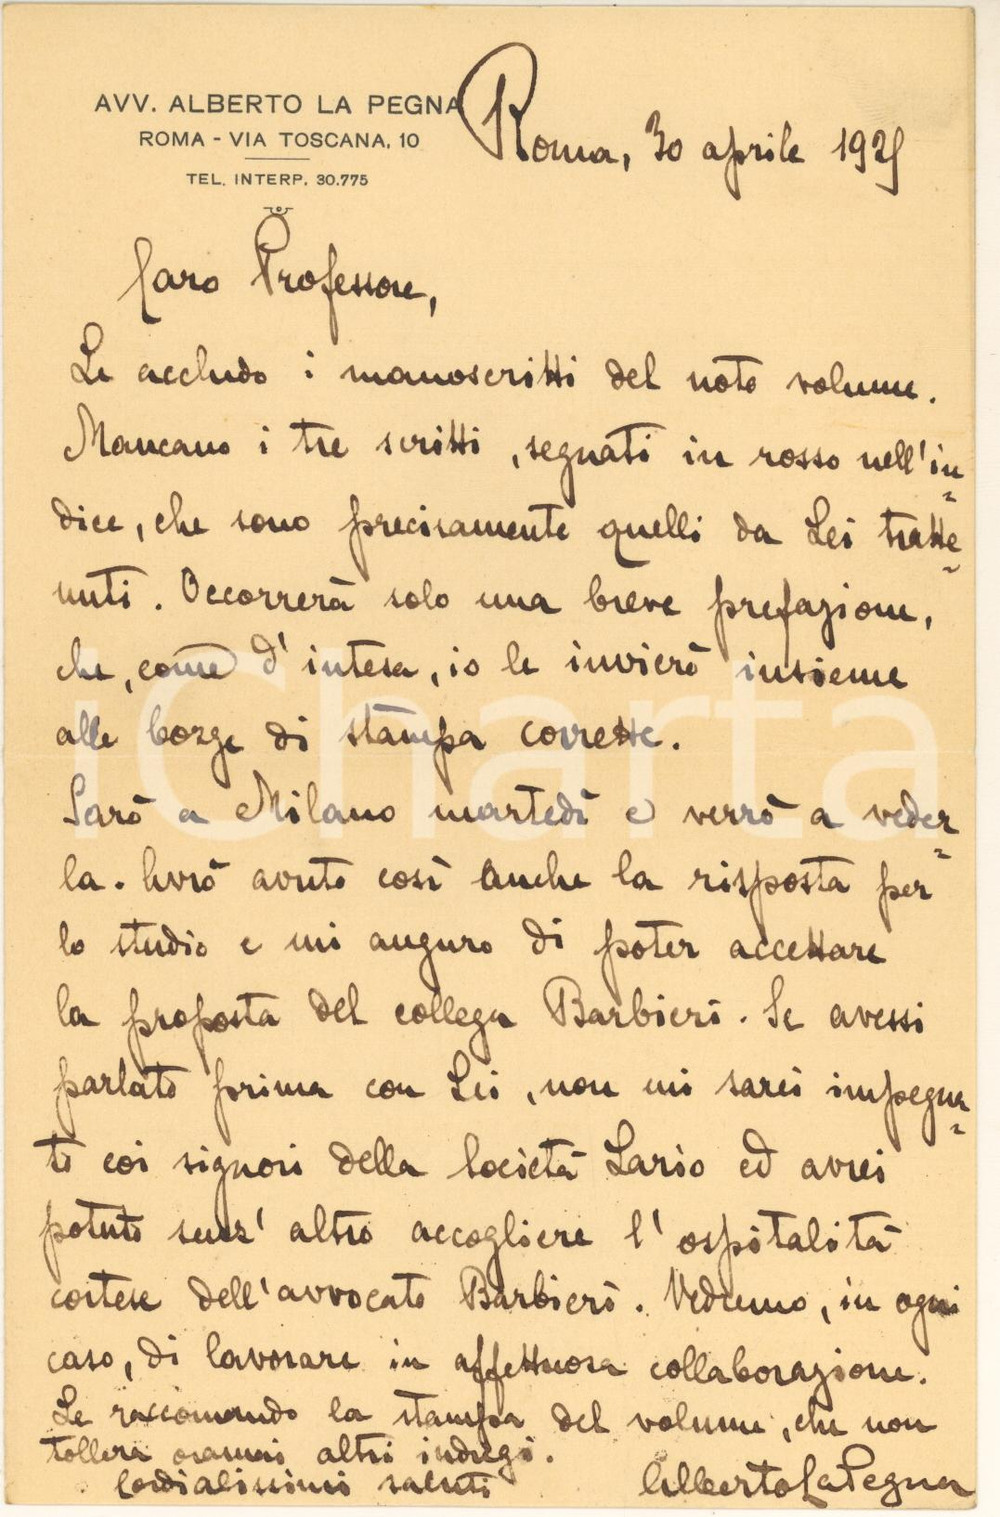 AVV. ALBERTO LA PEGNA
ROMA - VIA TOSCANA, 10
TEL. INTERP. 30.775
Roma, 30 aprile 1925
Caro Professore,
Le accludo i manoscritti del noto volume.
Mancano i tre scritti, segnati in rosso nell'in=
dice, che sono precisamente quelli da Lei tratte=
nuti. Occorrerà solo una breve prefazione,
che, come d'intesa, io le invierò insieme
alle bozze di stampa corrette.
Sarò a Milano martedì e verrò a veder=
la. Avrò avuto così anche la risposta per
lo studio e mi auguro di poter accettare
la proposta del collega Barbieri. Se avessi
parlato prima con Lei, non mi sarei impegna=
to coi signori della Società Lario ed avrei
potuto senz'altro accogliere l'ospitalità
cortese dell'avvocato Barbieri. Vedremo, in ogni
caso, di lavorare in affettuosa collaborazione.
Le raccomando la stampa del volume, che non
tollera oramai altri indugi.
Cordialissimi saluti
Alberto La Pegna
iCharta